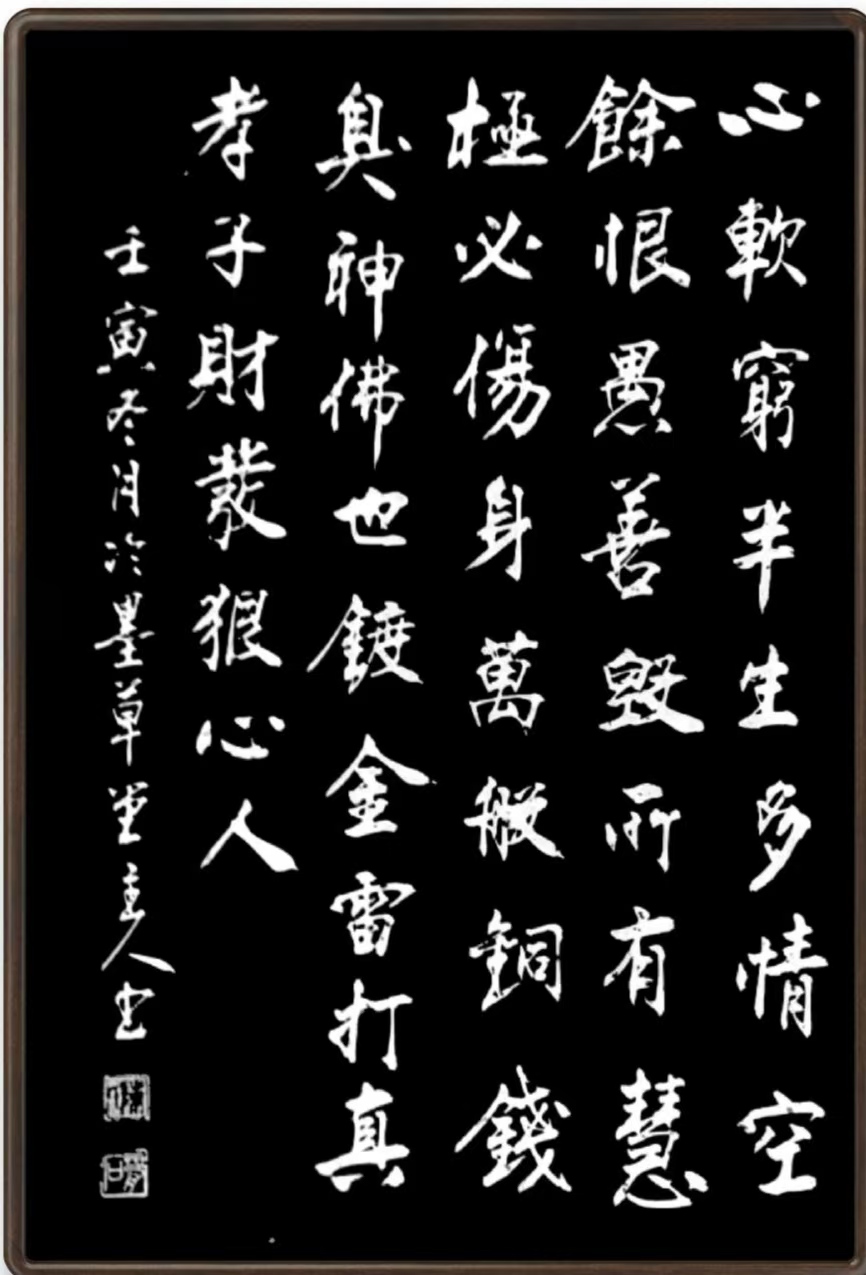 心軟窮半生多情空
餘恨愚善毀所有慧
極必傷身萬般銅錢
臭神佛也鍍金雷打真
孝子財發狠心人
壬寅冬月冷墨草堂主人書